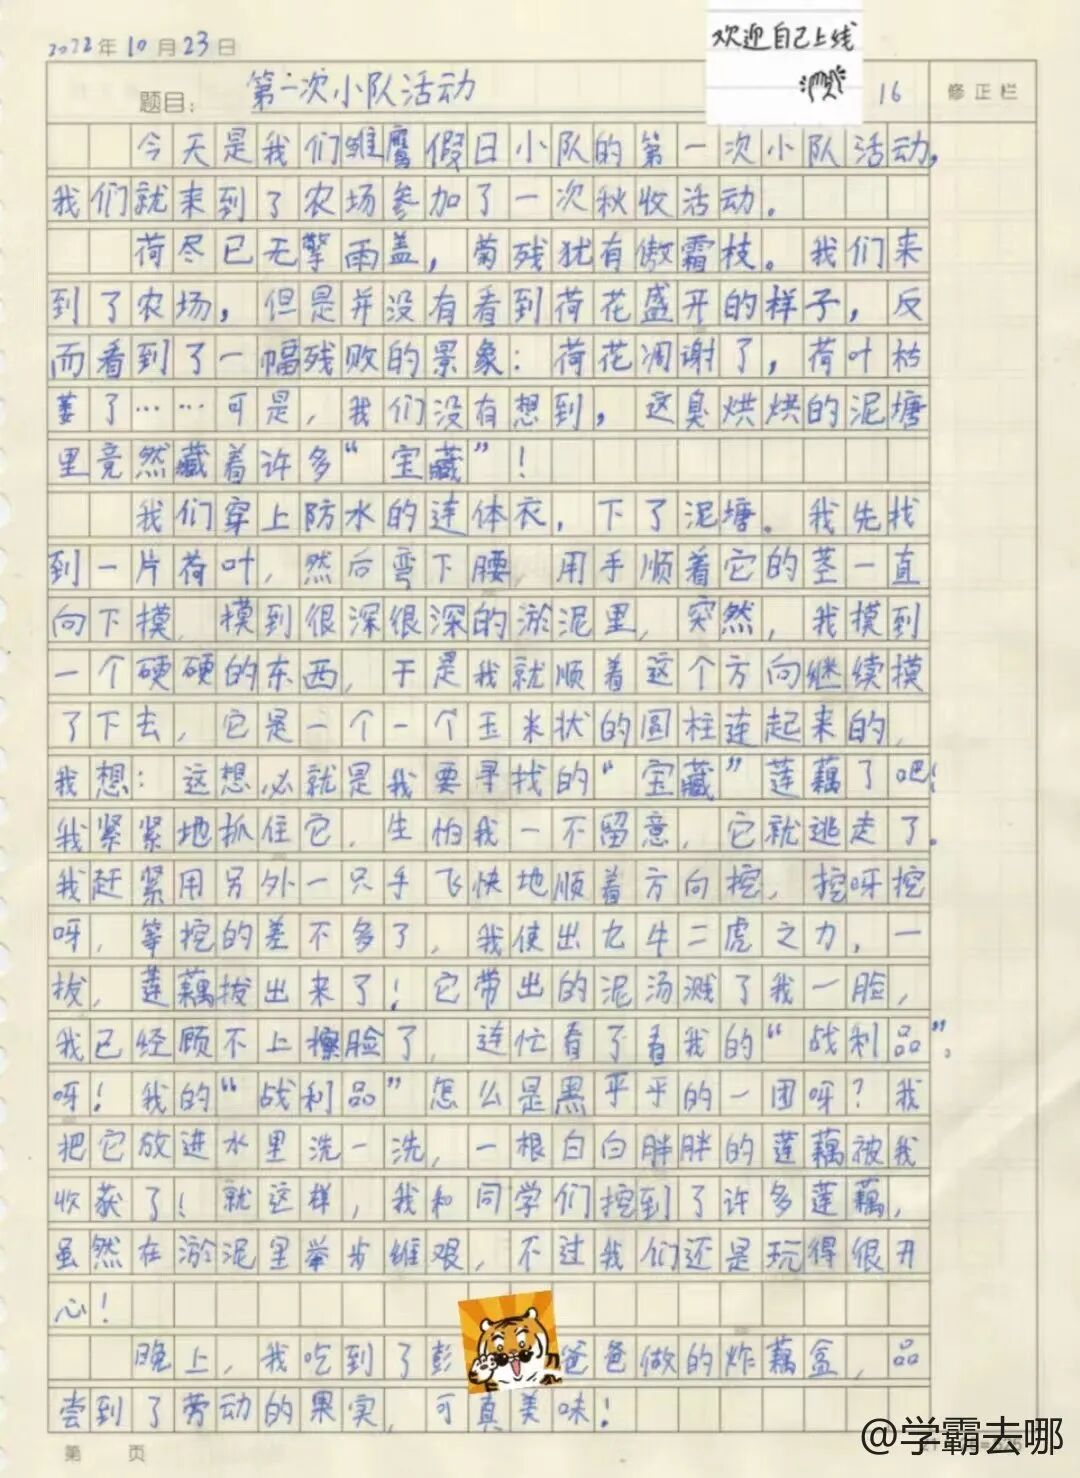 欢迎自己上线
2022年10月23日
题目：第一次小队活动
16
修正栏
今天是我们雏鹰假日小队的第一次小队活动，
我们就来到了农场参加了一次秋收活动。
荷尽已无擎雨盖，菊残犹有傲霜枝。我们来
到了农场，但是并没有看到荷花盛开的样子，反
而看到了一幅残败的景象：荷花凋谢了，荷叶枯
萎了……可是，我们没有想到，这臭烘烘的泥塘
里竟然藏着许多“宝藏”！
我们穿上防水的连体衣，下了泥塘。我先找
到一片荷叶，然后弯下腰，用手顺着它的茎一直
向下摸，摸到很深很深的淤泥里，突然，我摸到
一个硬硬的东西，于是我就顺着这个方向继续摸
了下去，它是一个一个玉米状的圆柱连起来的，
我想：这想必就是我要寻找的“宝藏”莲藕了吧！
我紧紧地抓住它，生怕我一不留意，它就逃走了。
我赶紧用另外一只手飞快地顺着方向挖，挖呀挖
呀，等挖的差不多了，我使出九牛二虎之力，一
拔，莲藕拔出来了！它带出的泥汤溅了我一脸，
我已经顾不上擦脸了，连忙看了看我的“战利品”，
呀！我的“战利品”怎么是黑乎乎的一团呀？我
把它放进水里洗一洗，一根白白胖胖的莲藕被我
收获了！就这样，我和同学们挖到了许多莲藕，
虽然在淤泥里举步维艰，不过我们还是玩得很开
心！
晚上，我吃到了彭爸爸做的炸藕盒，品
尝到了劳动的果实，可真美味！
第 页
@学霸去哪